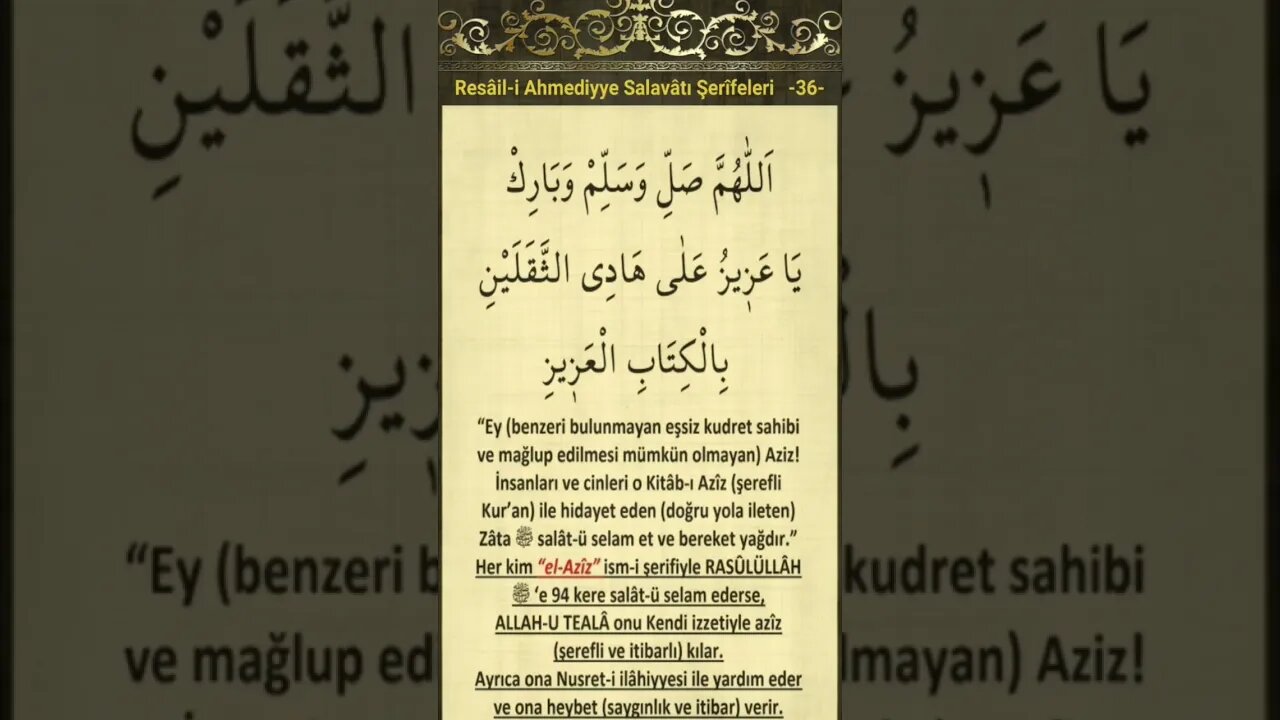 Resâil-i Ahmediyye Salavâtı Şerîfeleri -36-
اَللّٰهُمَّ صَلِّ وَسَلِّمْ وَبَارِكْ
يَا عَزٖيزُ عَلٰى هَادِى الثَّقَلَيْنِ
بِالْكِتَابِ الْعَزٖيزِ
“Ey (benzeri bulunmayan eşsiz kudret sahibi
ve mağlup edilmesi mümkün olmayan) Aziz!
İnsanları ve cinleri o Kitâb-ı Azîz (şerefli
Kur’an) ile hidayet eden (doğru yola ileten)
Zâta ﷺ salât-ü selam et ve bereket yağdır.”
Her kim “el-Azîz” ism-i şerifiyle RASÛLÜLLÂH
ﷺ ‘e 94 kere salât-ü selam ederse,
ALLAH-U TEALÂ onu Kendi izzetiyle azîz
(şerefli ve itibarlı) kılar.
Ayrıca ona Nusret-i ilâhiyyesi ile yardım eder
ve ona heybet (saygınlık ve itibar) verir.